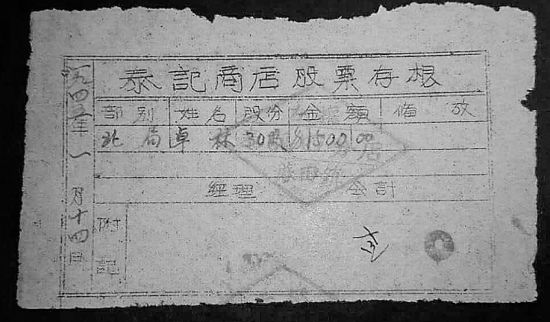 泰記商店股票存根
部别 姓名 股分 金額 備攷
北局 卓林 30股 $1500.00
經理 会計
附記
一九四二年一月十四日